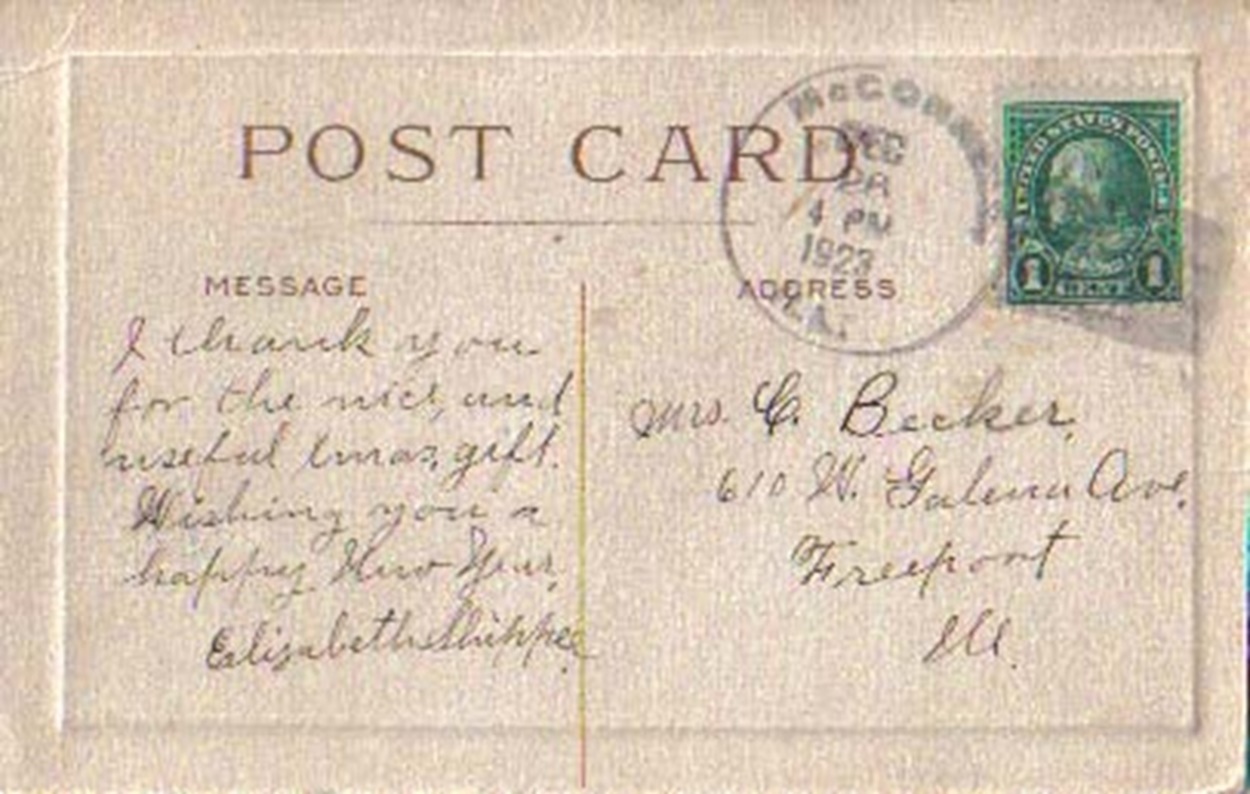 POST CARD
McCONN
DEC
28
4 PM
1923
UNITED STATES POSTAGE
1 1
MESSAGE
ADDRESS
I thank you
for the nice, and
useful Xmas, gift.
Wishing you a
happy New Year,
Elisabeth
Mrs. C. Becker,
610 W. Galena Ave.
Freeport
Ill.